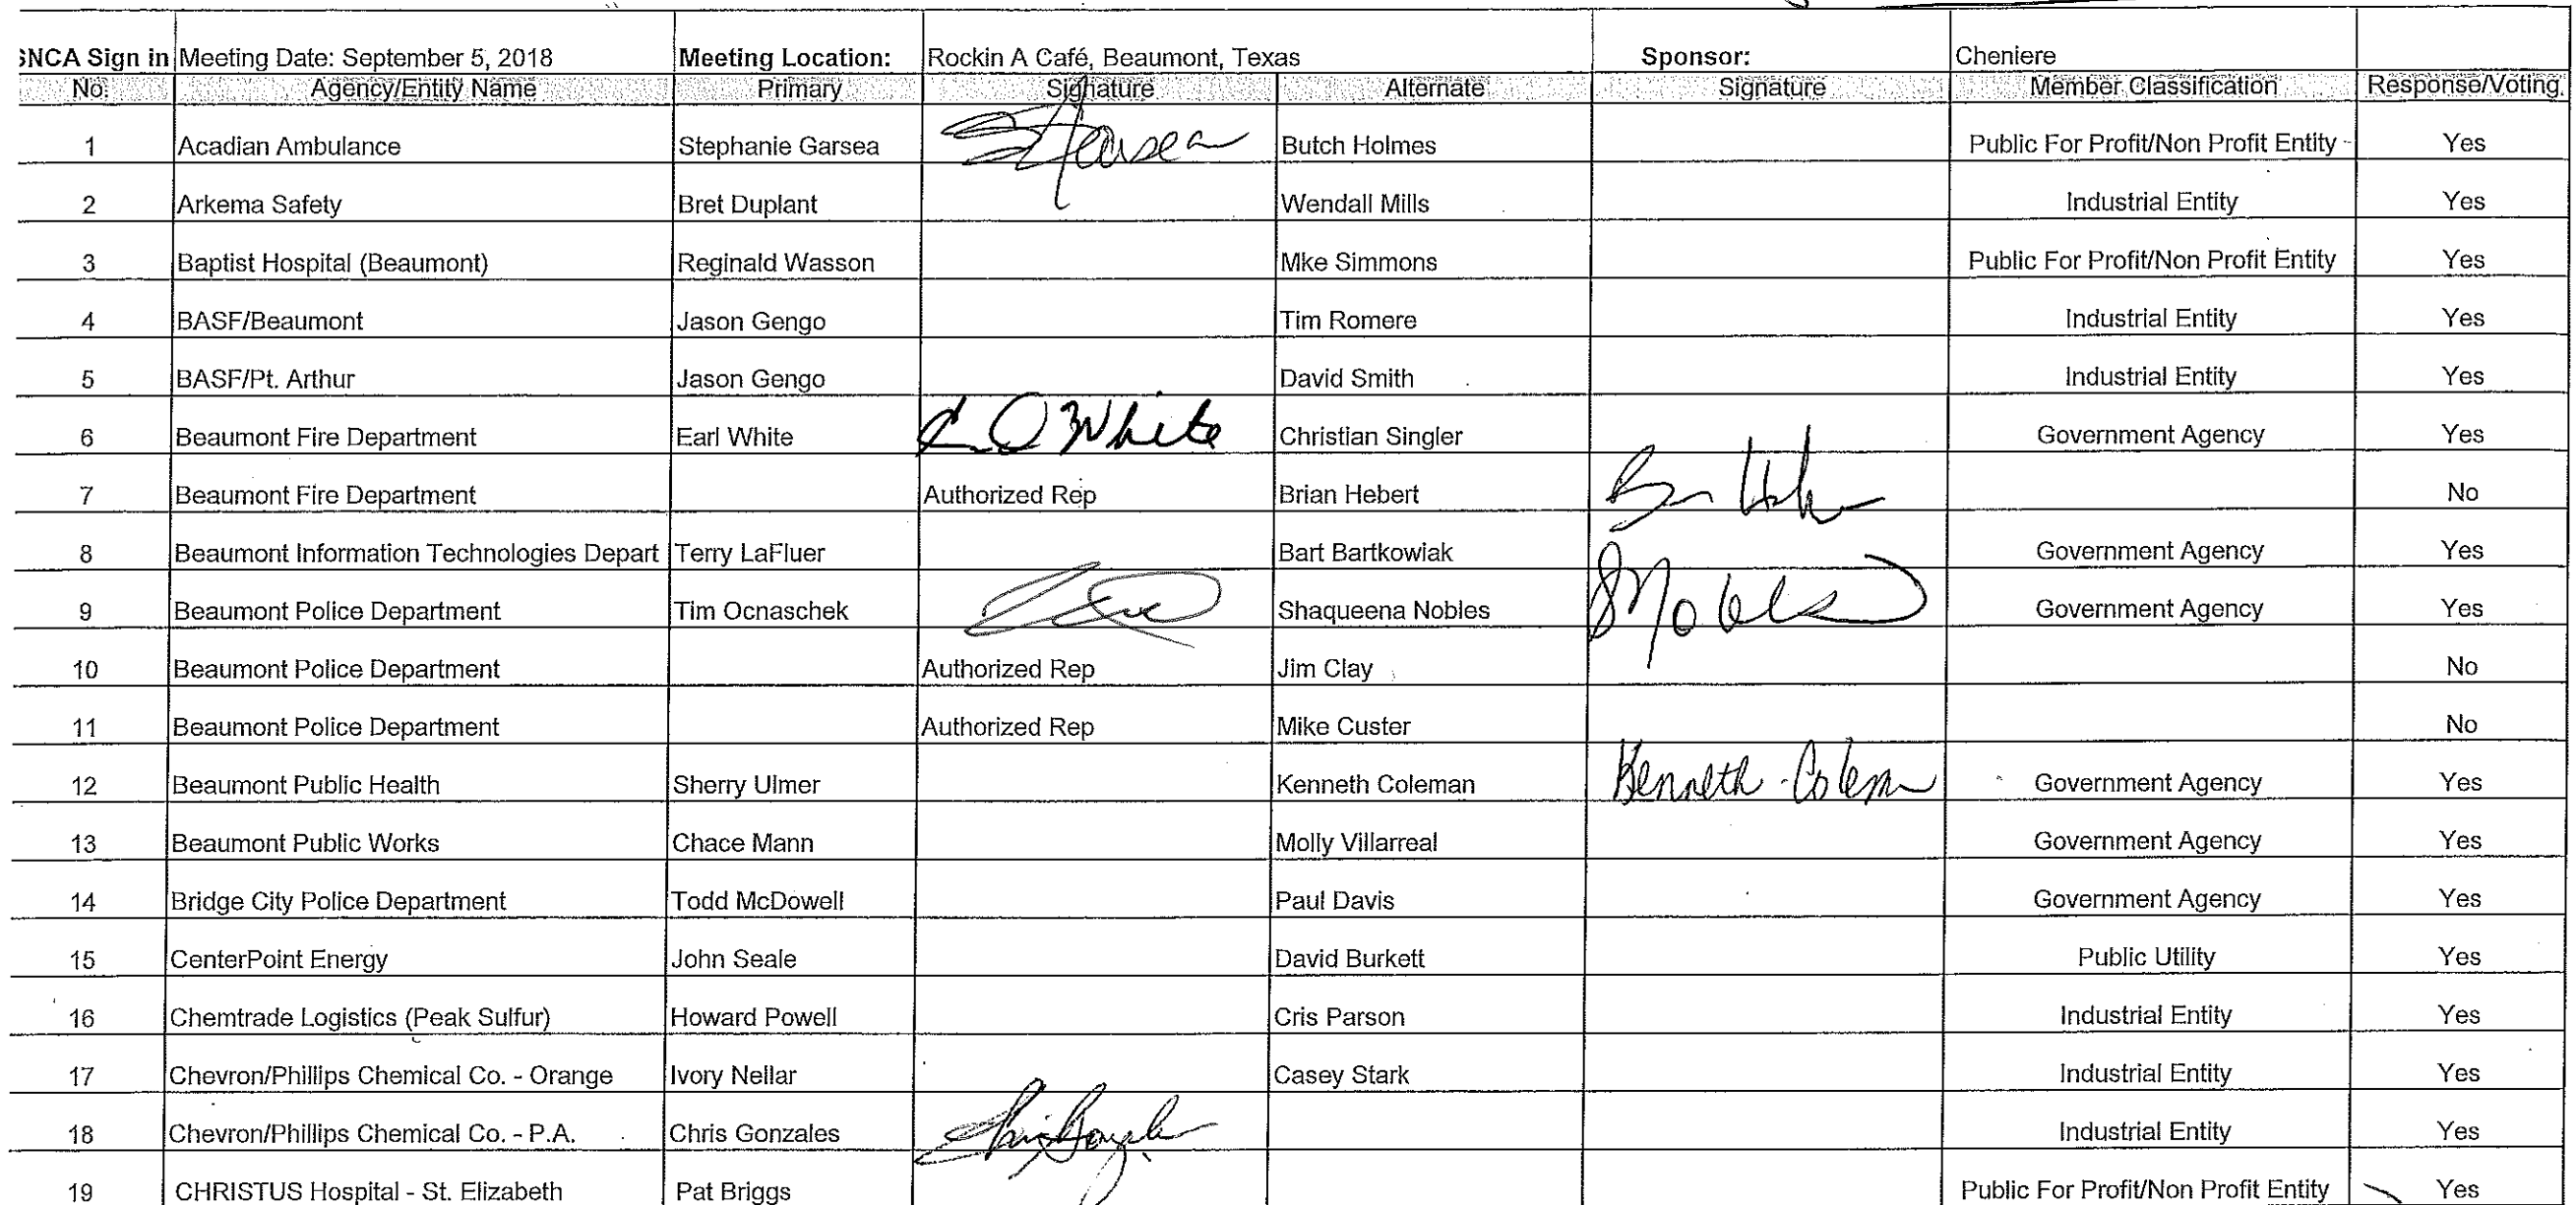 SNCA Sign in Meeting Date: September 5, 2018 Meeting Location: Rockin A Café, Beaumont, Texas Sponsor: Cheniere
No. Agency/Entity Name Primary Signature Alternate Signature Member Classification Response/Voting
1 Acadian Ambulance Stephanie Garsea Butch Holmes Public For Profit/Non Profit Entity Yes
2 Arkema Safety Bret Duplant Wendall Mills Industrial Entity Yes
3 Baptist Hospital (Beaumont) Reginald Wasson Mke Simmons Public For Profit/Non Profit Entity Yes
4 BASF/Beaumont Jason Gengo Tim Romere Industrial Entity Yes
5 BASF/Pt. Arthur Jason Gengo David Smith Industrial Entity Yes
6 Beaumont Fire Department Earl White White Christian Singler Government Agency Yes
7 Beaumont Fire Department Authorized Rep Brian Hebert No
8 Beaumont Information Technologies Depart Terry LaFluer Bart Bartkowiak Government Agency Yes
9 Beaumont Police Department Tim Ocnaschek Shaqueena Nobles Government Agency Yes
10 Beaumont Police Department Authorized Rep Jim Clay No
11 Beaumont Police Department Authorized Rep Mike Custer No
12 Beaumont Public Health Sherry Ulmer Kenneth Coleman Kenneth Government Agency Yes
13 Beaumont Public Works Chace Mann Molly Villarreal Government Agency Yes
14 Bridge City Police Department Todd McDowell Paul Davis Government Agency Yes
15 CenterPoint Energy John Seale David Burkett Public Utility Yes
16 Chemtrade Logistics (Peak Sulfur) Howard Powell Cris Parson Industrial Entity Yes
17 Chevron/Phillips Chemical Co. - Orange Ivory Nellar Casey Stark Industrial Entity Yes
18 Chevron/Phillips Chemical Co. - P.A. Chris Gonzales Industrial Entity Yes
19 CHRISTUS Hospital - St. Elizabeth Pat Briggs Public For Profit/Non Profit Entity Yes